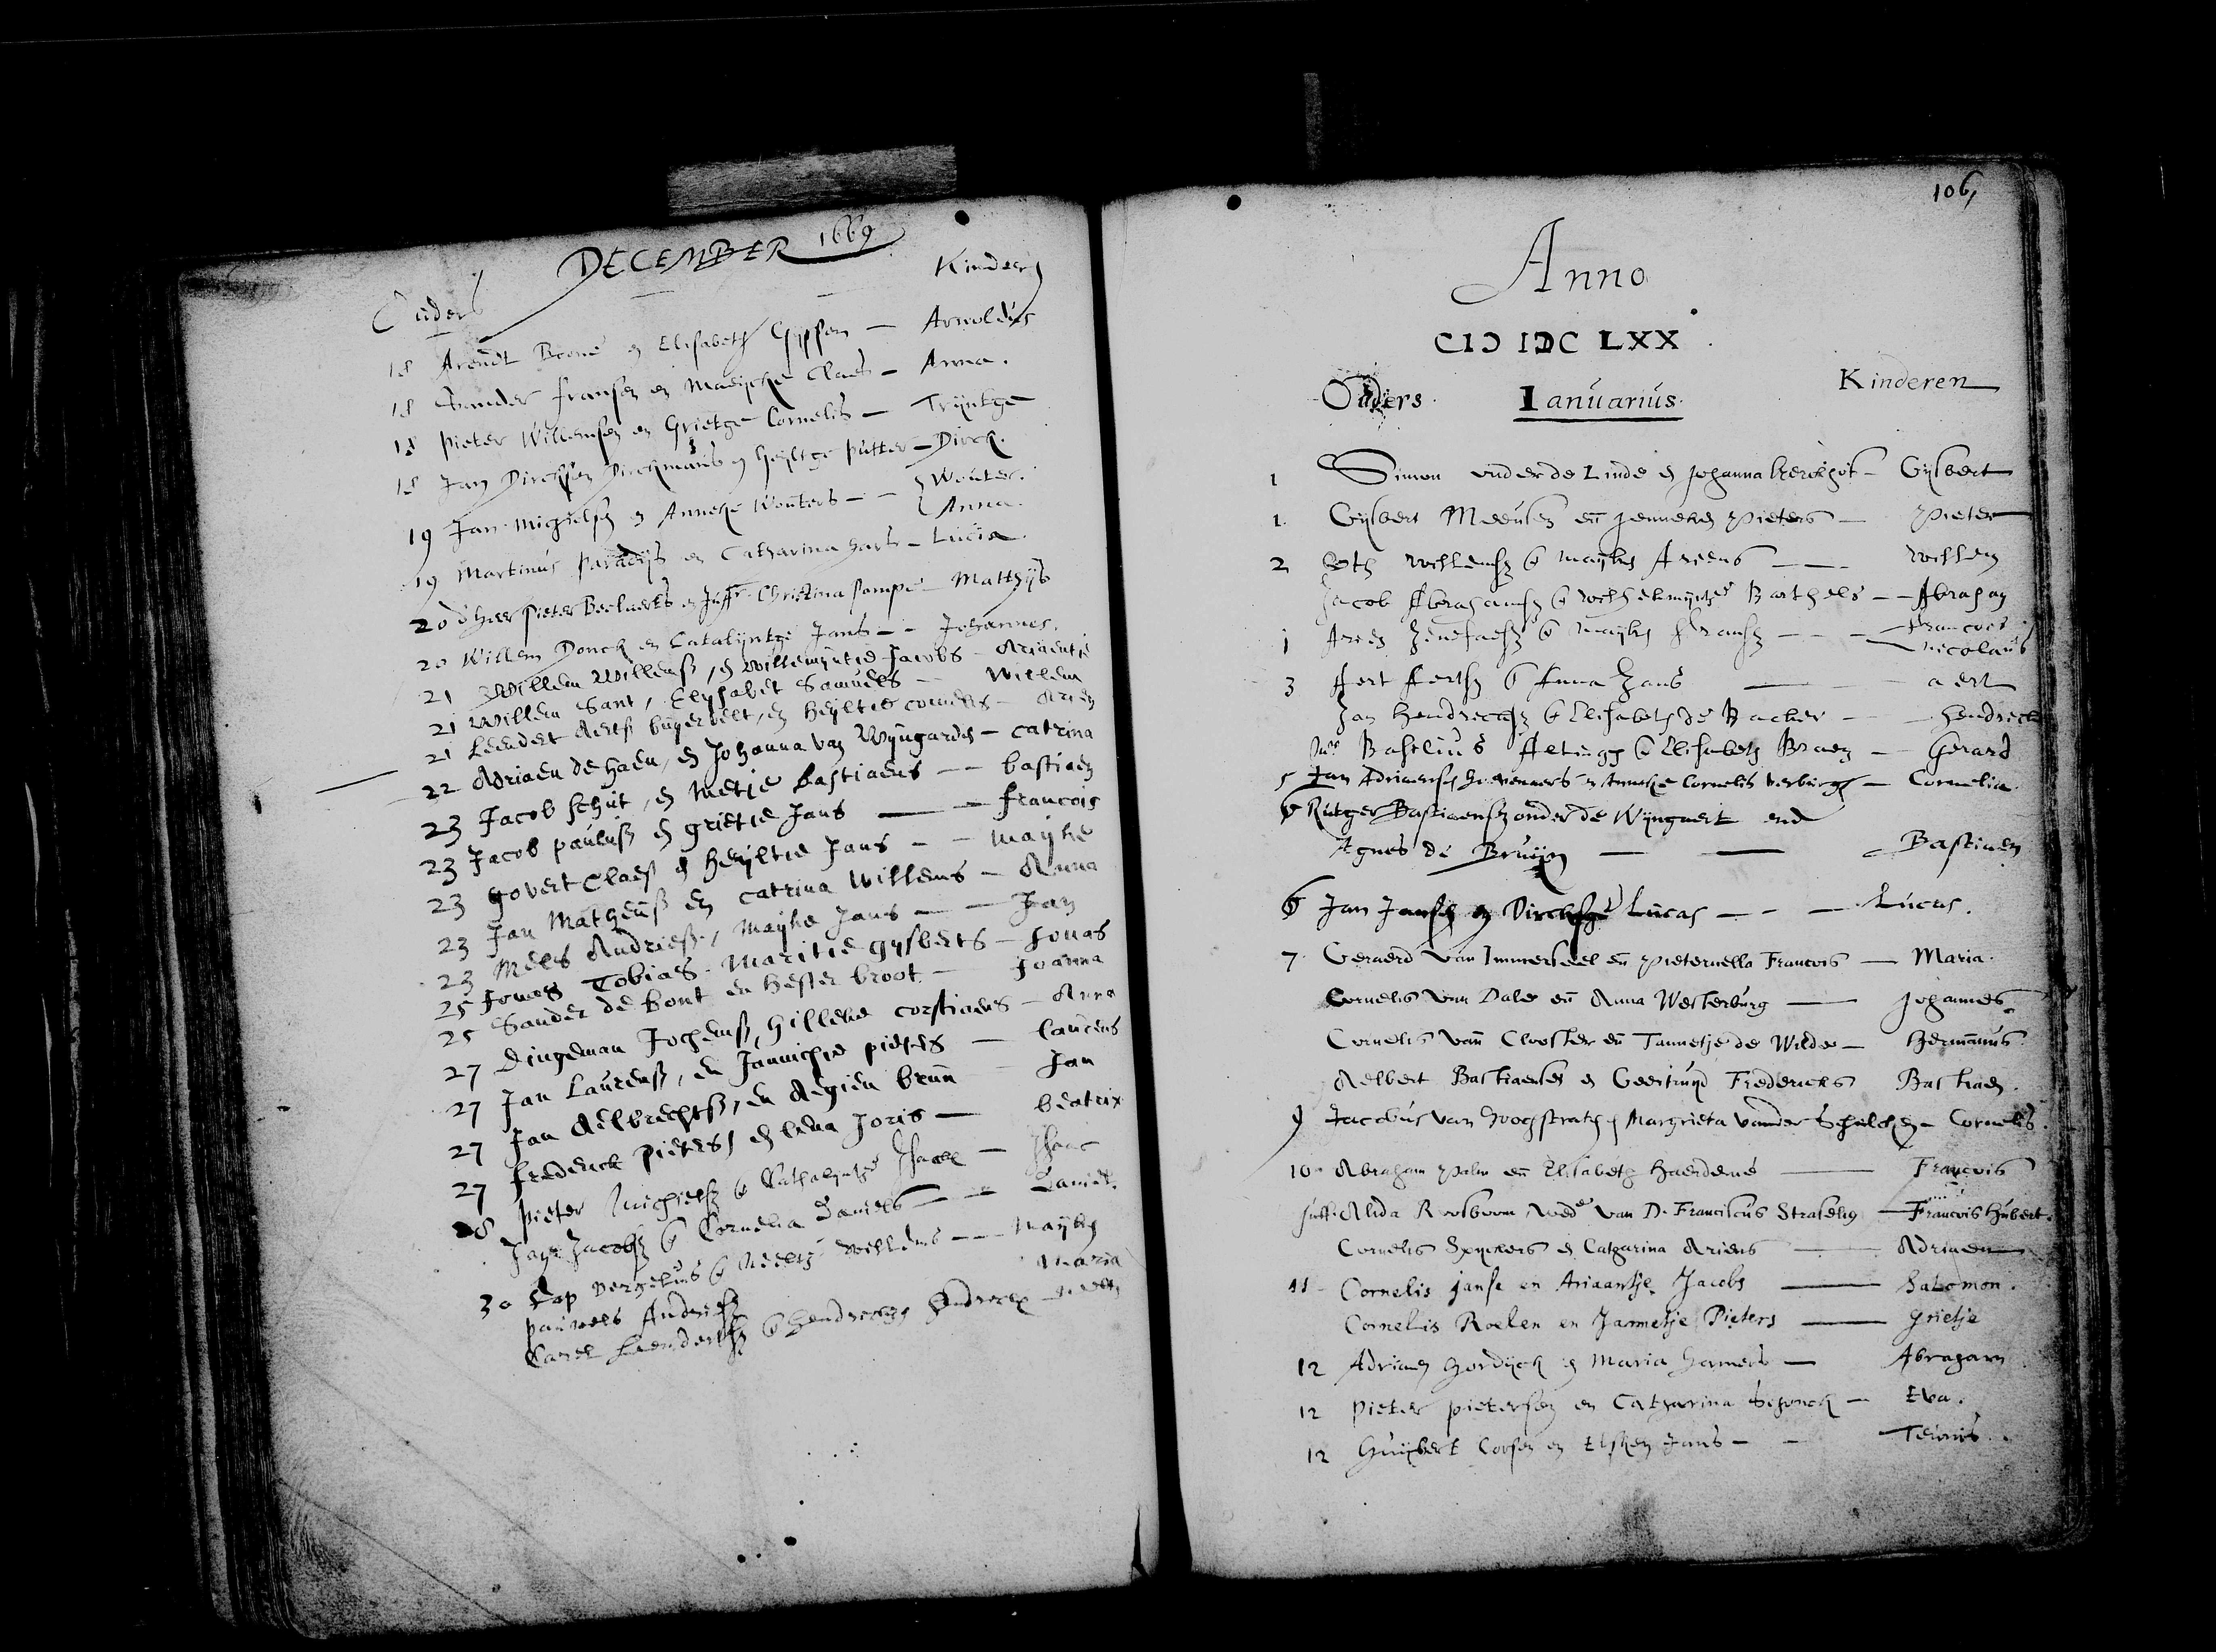 DECEMBER 1669
Ouders Kinderen
18 Arendt Boone en Elisabeth Gijsen — Arnoldus
18 Sander Fransen en Maeijcke Claes — Anna.
18 Pieter Willemsen en Grietge Cornelis — Trijntge
18 Jan Dircksen Dirckmans en Heyltge Putter — Dirck.
19 Jan Michielsen en Anneke Wouters — — Wouter.
Anna.
19 Martinus Paradijs en Catharina — Lucia.
20 d'heer Pieter Beelaerts en Juffr. Christina Pompe — Matthijs
20 Willem Donck en Catalijntge Jans — — Johannes.
21 Willem Willemsz, en Willemijntie Jacobs — Ariaentie
21 Willem Sant, Elysabet Samuels — Willem
21 Leendert Aertsz buijervelt, en Heijltie cornelis — Arien
22 Adriaen de haen, en Johanna van Wijngarden — catrina
23 Jacob schut, en metje bastiaens — — bastiaen
23 Jacob paulusz en grietie Jans — — francois
23 govert Claesz en heijltie Jans — — mayke
23 Jan Matheusz en catrina Willems — Anna
23 Mels Andriesz, Mayke Jans — — Jan
25 Jonas Tobias. Maritie gysberts — Jonas
25 Sander de bont en hester broot — Joanna
27 Dingeman Jochemsz, gilleke corstiaens — Anna
27 Jan Laurensz, en Jannichie pieters — laurens
27 Jan Aelbrechtsz, en Aegien brun — Jan
27 frederick Pieters, en lena Joris — beatrix
28 Pieter Michielsz en Cathalyntie Isaack — Isaac
Jan Jacobsz en Cornelia Daniels — — Daniel.
30 Cap vergelius en Neeltje Willems — — Mayken
pauwels Andriesz Maria
Carel Leendertsz en hendrickje hendricx — neelt
106,
Anno
CIↃ IↃC LXX.
Ouders. Ianuarius. Kinderen
1 Simon vander de Linde en Johanna kerckhof — Gijsbert
1. Gijsbert Meeusen en Jenneken Pieters — Pieter
2 Oth Willemsz en mayken Ariens — — Willem
Jacob Abrahamsz en Wilhelmijntje Barthels — — Abraham
1 Arien en mayken fransz — — — Francois
nicolaus
3 Aert Aertsz en Anna Jans — — aert
Jan hendricksz en Elisabeth de Backer — — hendrick
Mr Basilius Altingh en Elisabeth Braen — Gerard
5 Jan Adriaensen en Anneke Cornelis verburgh — Cornelia.
6 Rutger Bastiaensen onder de Wijngaert end
Agnes de Bruijn — — Bastiaen
6 Jan Jansen en Dirckge Lucas — — — Lucas.
7. Geraerd van Immerseel en Pieternella Francois — Maria.
Cornelis van Dale en Anna Westerburg — Johannes.
Cornelis van Clooster en Tannetje de Wilde — Hermannus.
Aelbert Bastiaensen en Geertruijd Fredericks Bastiaen.
9 Jacobus van Hoogstraten en Margrieta vander Schulchen — Cornelis.
10 Abraham Palm en Elisabeth Haerdeme — Francois
Juff. Alida Roosboom, wede van D. Franciscus Straselig — Francois Hubert.
Cornelis Spijckers en Catharina Ariens — Adriaen
11 — Cornelis Janse en Ariaantje Jacobs — Salomon.
Cornelis Roelen en Jannetje Pieters — Grietje
12 Adriaen Gordijck en Maria Hamers — Abraham
12 Pieter Pietersen en Catharina Schonck — Eva.
12 Huijbert Corsen en Elsken Jans — — Teunis.